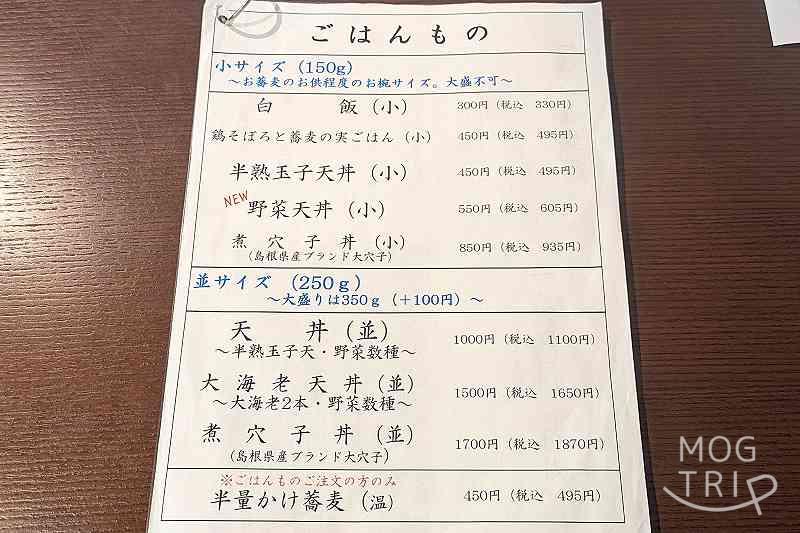 ごはんもの
小サイズ（150g）
～お蕎麦のお供程度のお椀サイズ。大盛不可～
白飯（小） 300円（税込 330円）
鶏そぼろと蕎麦の実ごはん（小） 450円（税込 495円）
半熟玉子天丼（小） 450円（税込 495円）
NEW 野菜天丼（小） 550円（税込 605円）
煮穴子丼（小） 850円（税込 935円）
（島根県産ブランド大穴子）
並サイズ（250g）
～大盛りは350g（＋100円）～
天丼（並） 1000円（税込 1100円）
～半熟玉子天・野菜数種～
大海老天丼（並） 1500円（税込 1650円）
～大海老2本・野菜数種～
煮穴子丼（並） 1700円（税込 1870円）
（島根県産ブランド大穴子）
※ごはんものご注文の方のみ
半量かけ蕎麦（温） 450円（税込 495円）
MOG
TRIP